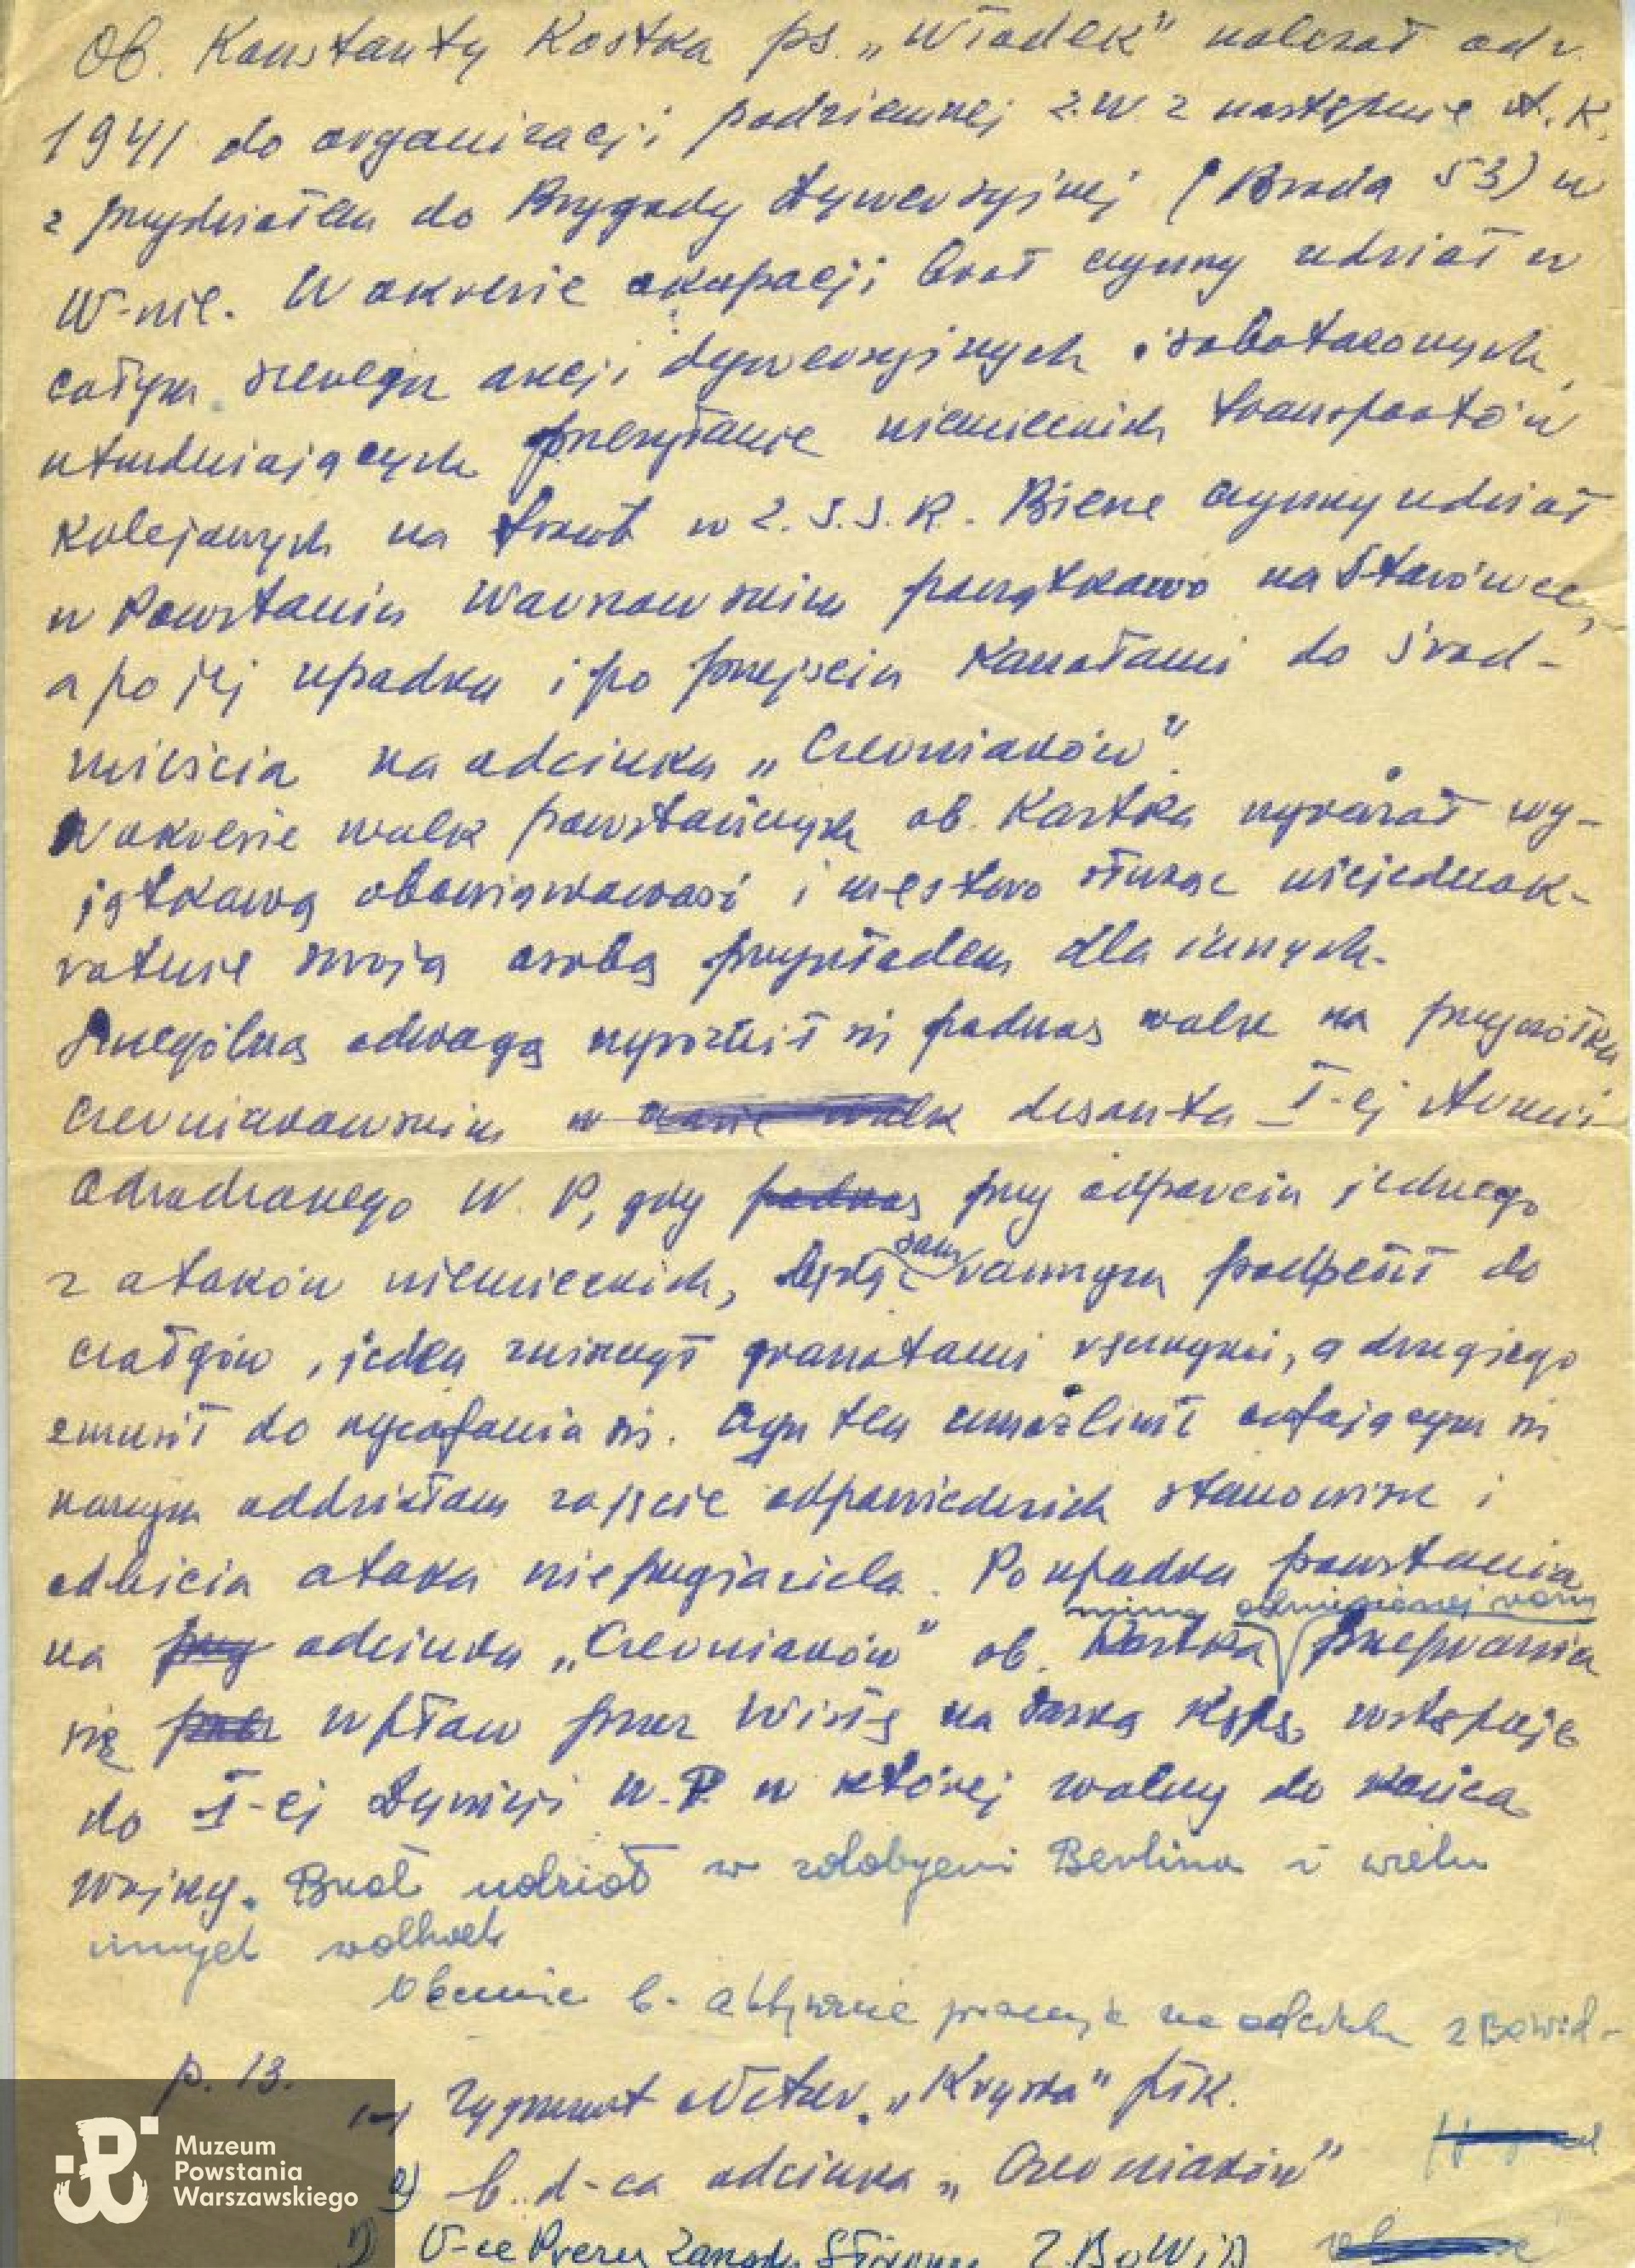 Ob. Konstanty Kostka ps. „Władek" należał od r.
1941 do organizacji podziemnej Z.W.Z następnie A.K.
z przydziałem do Brygady Dywersyjnej (Broda 53) w
W-wie. W okresie okupacji brał czynny udział w
całym szeregu akcji dywersyjnych i sabotażowych,
utrudniających przesyłanie niemieckich transportów
kolejowych na front w Z.S.S.R. Bierze czynny udział
w Powstaniu Warszawskim początkowo na Starówce,
a po jej upadku i po przejściu kanałami do Śród-
mieścia na odcinku „Czerniaków".
W okresie walk powstańczych ob. Kostka wyrażał wy-
jątkową obowiązkowość i męstwo służąc niejednok-
rotnie swoją osobą przykładem dla innych.
Szczególną odwagą wyróżnił się podczas walk na przyczółku
Czerniakowskim w czasie walk desantu I-ej Armii
Odrodzonego W.P, gdy podczas przy odparciu jednego
z ataków niemieckich, będąc sam rannym podpełzł do
czołgów, jeden zniszczył granatami ręcznymi, a drugiego
zmusił do wycofania się. Czyn ten umożliwił cofającym się
naszym oddziałom zajęcie odpowiednich stanowisk i
odbicia ataku nieprzyjaciela. Po upadku powstania
mimo odniesionej rany
na przy odcinku „Czerniaków" ob. Kostka przeprawia
się wpław przez Wisłę na Saską Kępę, wstępuje
do I-ej Dywizji W.P. w której walczy do końca
wojny. Brał udział w zdobyciu Berlina i wielu
innych walkach
Obecnie b. aktywnie pracuje na odcinku ZBowid-
p. 13.
1) Zygmunt Netzer „Kryska" płk.
2) b. d-ca odcinka „Czerniaków"
3) V-ce Prezes Zarządu Z.BoWiD
Muzeum
Powstania
Warszawskiego